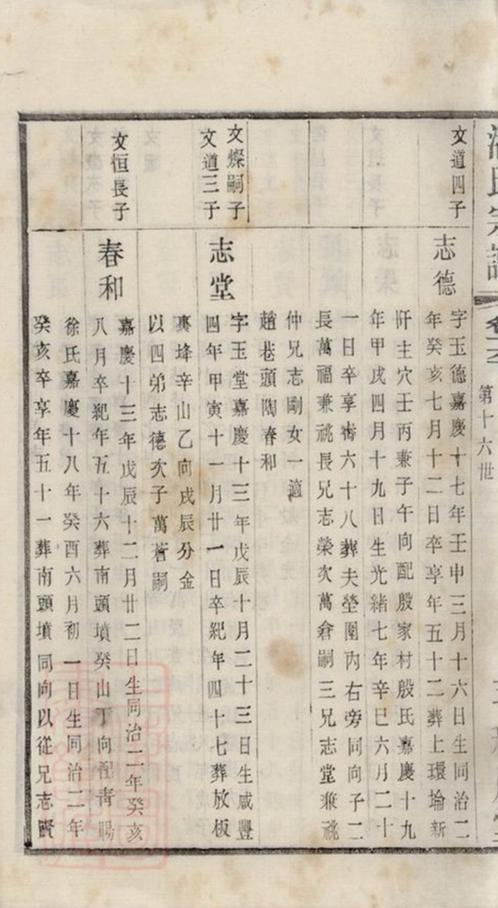 第十六世
文道四子
志德
字玉德嘉慶十七年壬申三月十六日生同治二
年癸亥七月十二日卒享年五十二葬上環埨新
阡主穴壬丙兼子午向配殷家村殷氏嘉慶十九
年甲戌四月十九日生光緒七年辛巳六月二十
一日卒享壽六十八葬夫塋圍內右旁同向子二
長萬福兼祧長兄志榮次萬倉嗣三兄志堂兼祧
仲兄志剛女一適
趙巷頭陶春和
文燦嗣子
文道三子
志堂
字玉堂嘉慶十三年戊辰十月二十三日生咸豐
四年甲寅十一月廿一日卒紀年四十七葬放板
裏埄辛山乙向戌辰分金
以四弟志德次子萬蒼嗣
文恒長子
春和
嘉慶十三年戊辰十二月廿二日生同治二年癸亥
八月卒紀年五十六葬南頭墳癸山丁向配青暘
徐氏嘉慶十八年癸酉六月初一日生同治二年
癸亥卒享年五十一葬南頭墳同向以從兄志賢